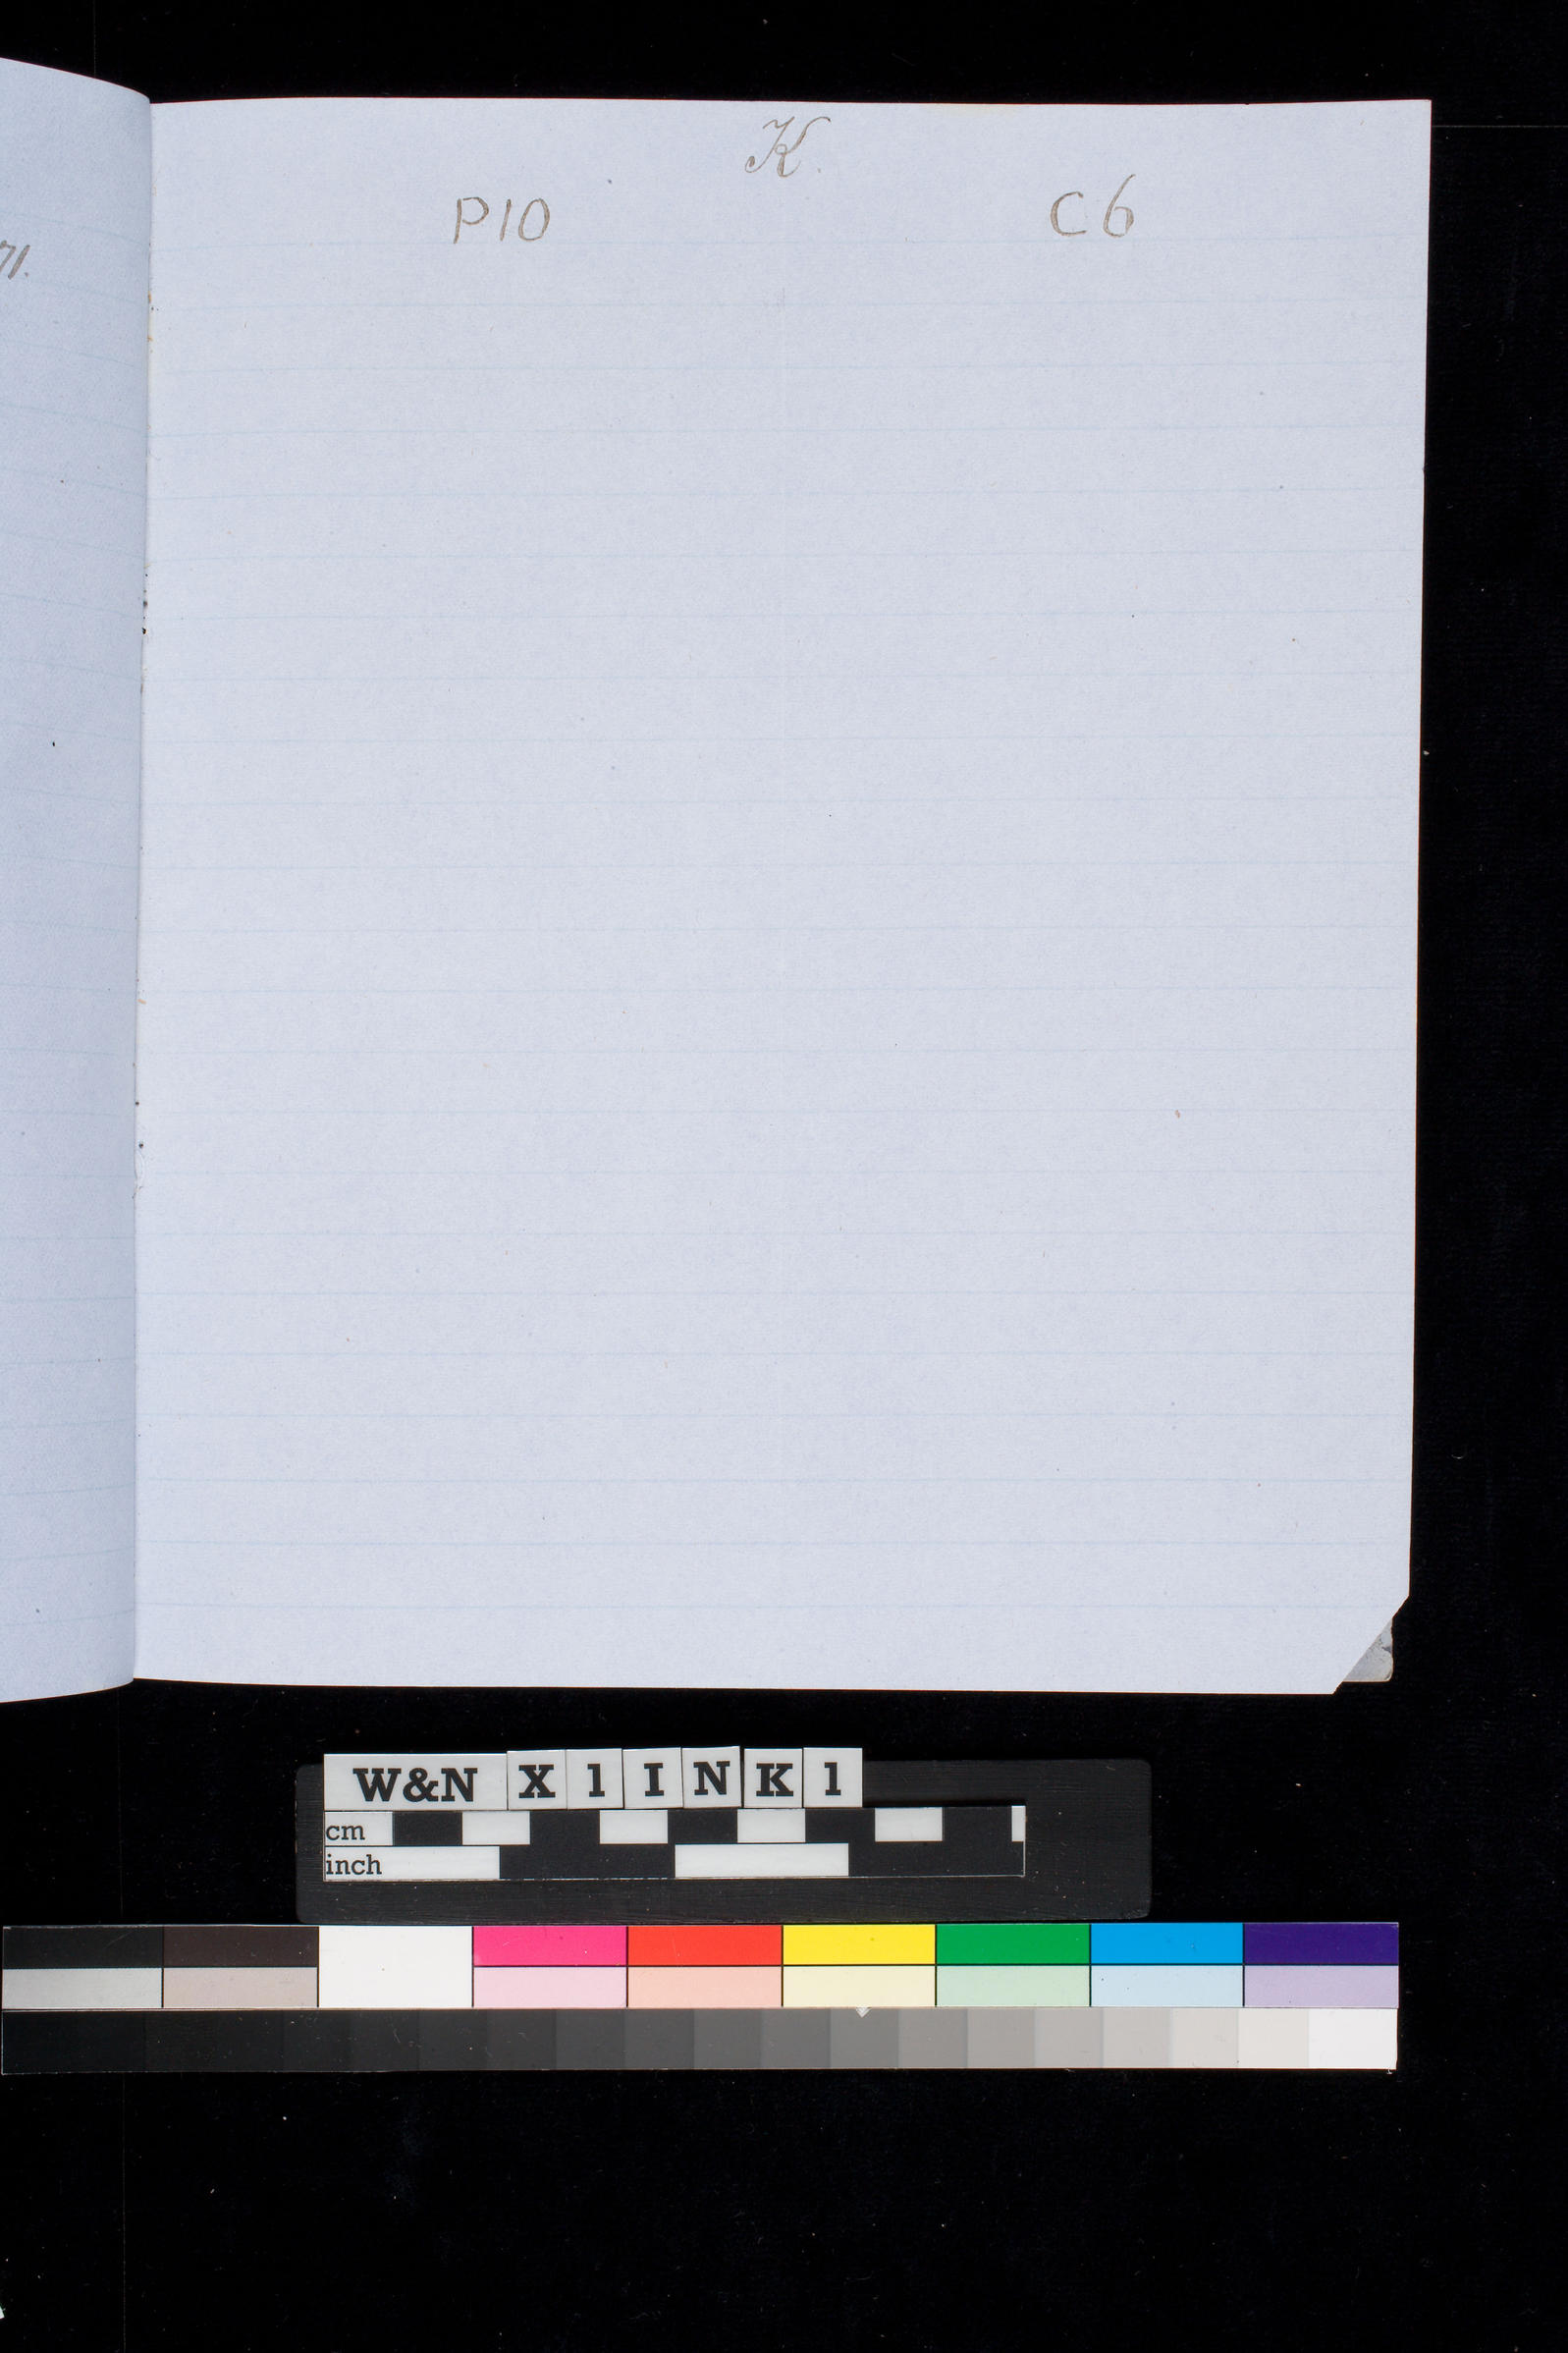 K.
P10 C6
71.
W&N X 1 I N K 1
cm
inch